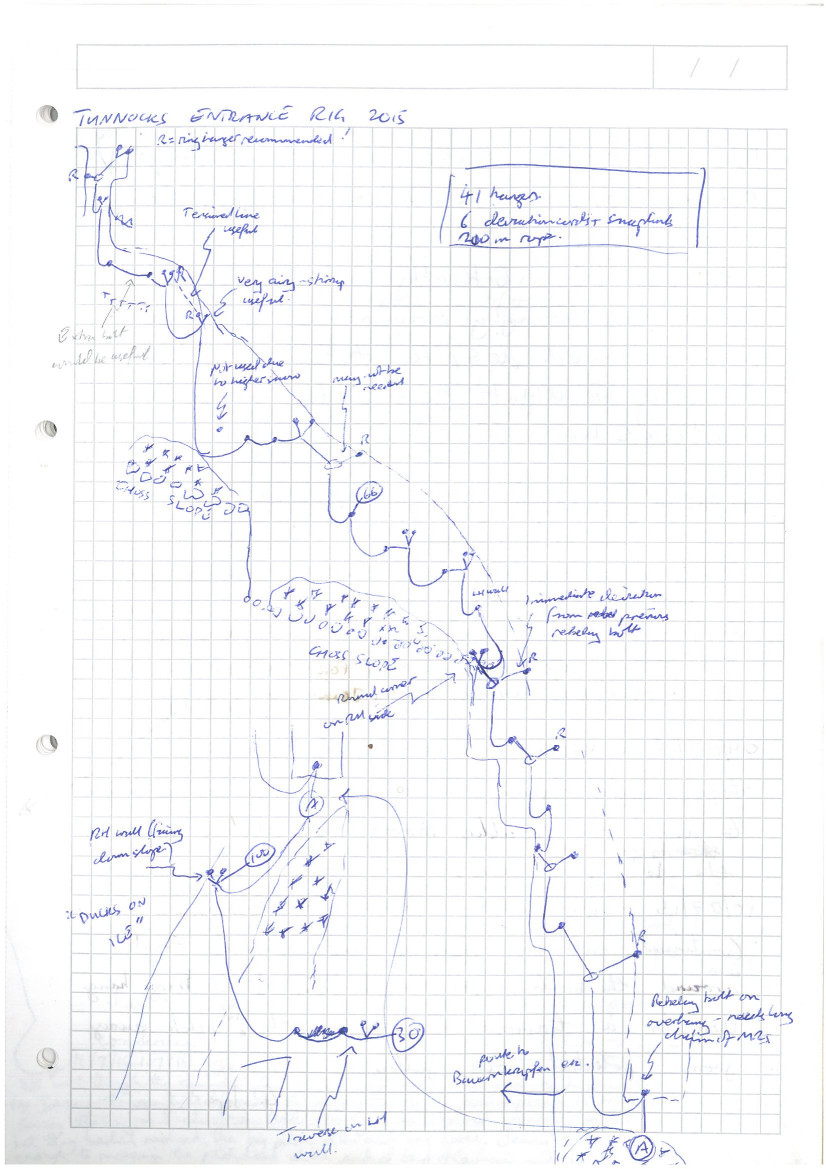 / /
TUNNOCKS ENTRANCE RIG 2015
R = ring hanger recommended!
R
41 hangers
6 deviation cords + snaplinks
200 m rope.
Tensioned line
useful
R
very airy - stirrup
useful.
R
Extra bolt
would be useful
Not used due
to higher snow
may not be
needed
R
CHOSS SLOPE
66
LH wall
Immediate deviation
from previous
rebelay bolt
R
CHOSS SLOPE
Round corner
on RH side
R
A
RH wall (facing
down slope)
100
"DUCKS ON
ICE"
R
Rebelay bolt on
overhang - needs long
chain of MRs
30
route to
Bauernkrapfen etc.
Traverse on left
wall.
A